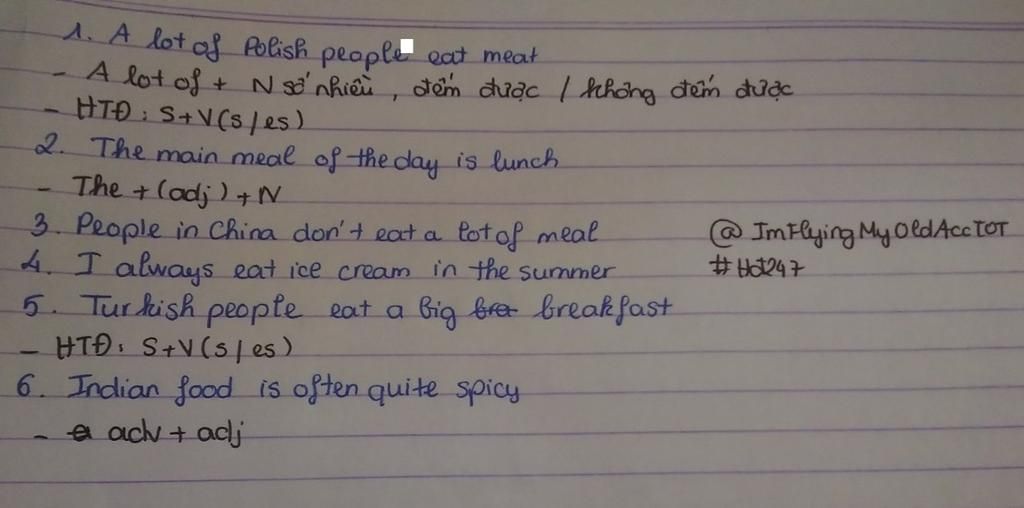 1. A lot of Polish people eat meat
- A lot of + N số nhiều, đếm được / không đếm được
- HTĐ: S+V(s/es)
2. The main meal of the day is lunch
- The + (adj) + N
3. People in China don't eat a lot of meal
@ImFlyingMyOldAccTOT
4. I always eat ice cream in the summer
#Hdt247
5. Turkish people eat a big brea breakfast
- HTĐ: S+V(s/es)
6. Indian food is often quite spicy
- a adv + adj